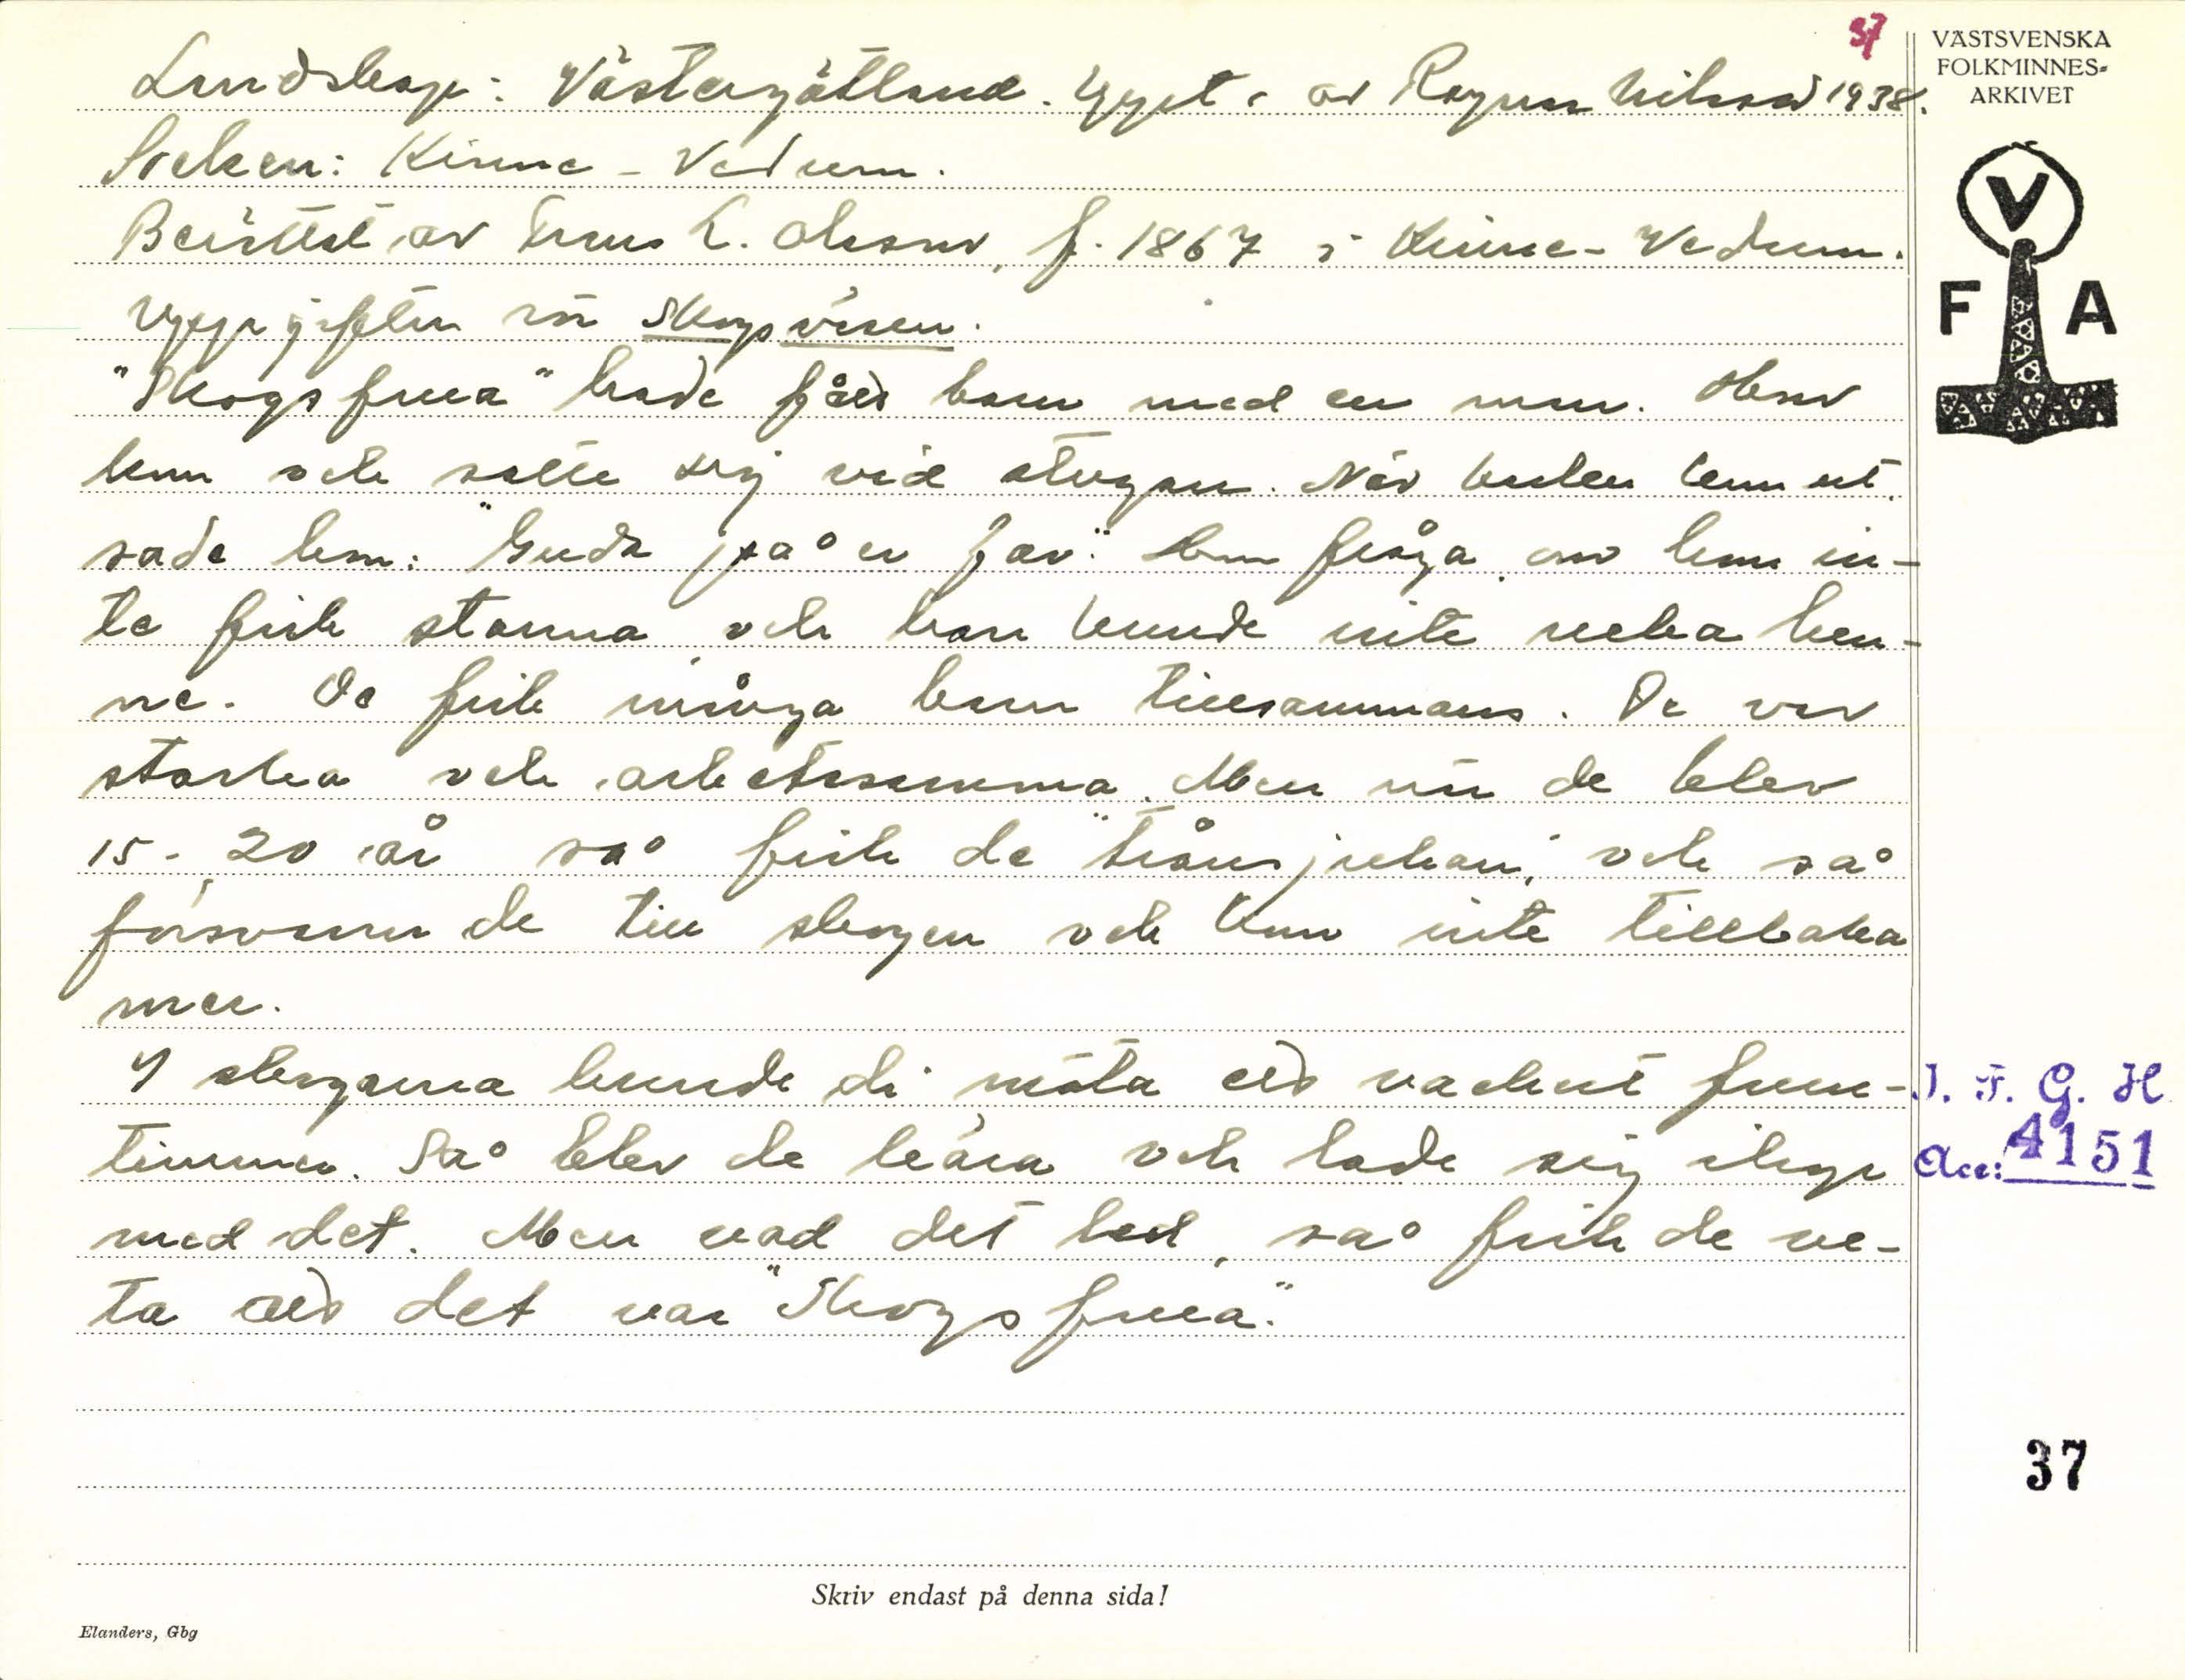 37
VÄSTSVENSKA
FOLKMINNES-
ARKIVET
Landskap: Västergötland. Uppt. av Ragnar Nilsson 1938.
Socken: Kinne-Vedum.
Berättat av Frans L. Olsson, f. 1867 i Kinne-Vedum.
Uppgifter om Skogsväsen.
V
F A
"Skogsfrua" hade fått barn med en man. Hon
kom och satte sig vid stugan. När karlen kom ut,
sade hon: "Guda på er far". Hon fråga, om hon in-
te fick stanna, och han kunde inte neka hen-
ne. De fick många barn tillsammans. De var
starka och arbetsamma. Men när de blev
15-20 år så fick de "trånsjukan", och så
försvann de till skogen och kom inte tillbaka
mer.
I skogarna kunde di möta ett vackert frun-
timmer. Så blev de kära och lade sig ihop
med det. Men vad det led, så fick de ve-
ta att det var "Skogsfrua".
I. F. G. H
Acc: 4151
37
Skriv endast på denna sida!
Elanders, Gbg